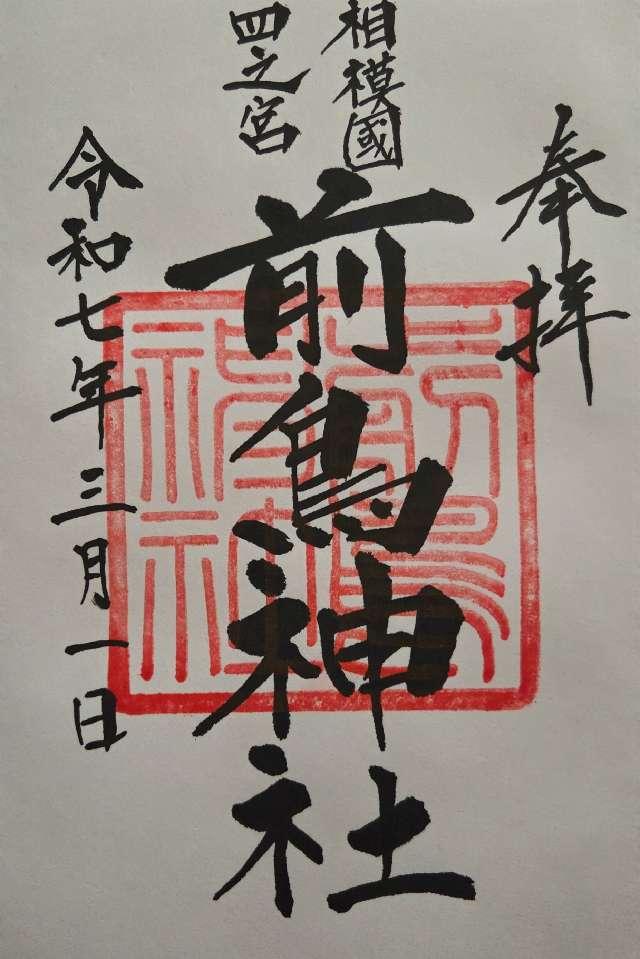 奉拝
相模國
四之宮
前鳥神社
令和七年三月一日